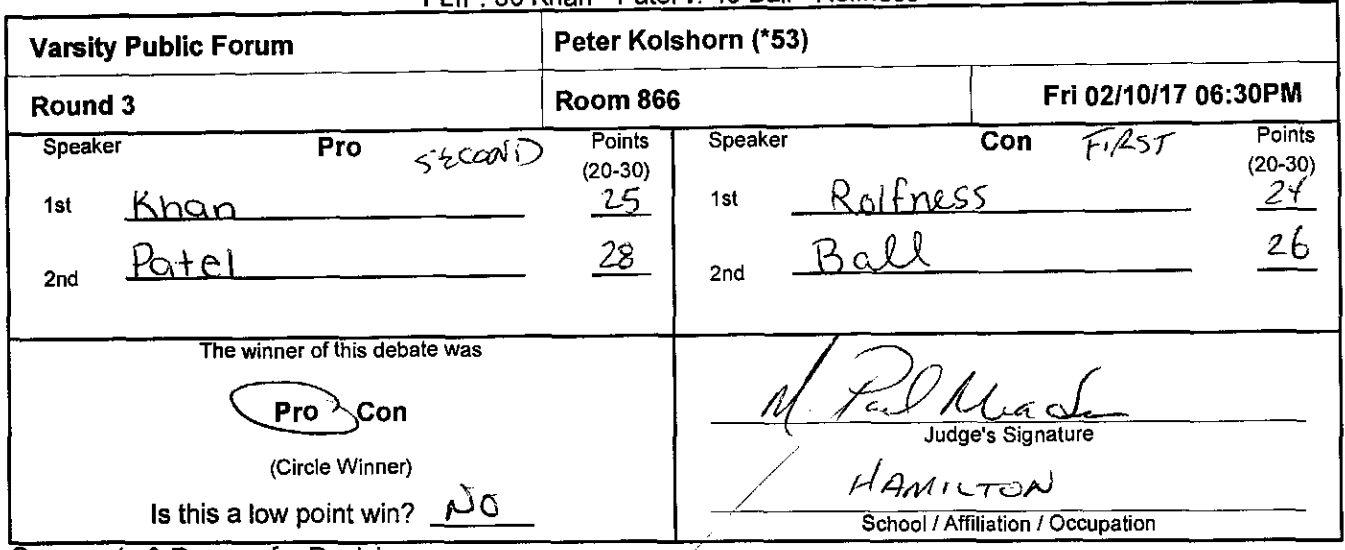 Varsity Public Forum
Peter Kolshorn (*53)
Round 3
Room 866
Fri 02/10/17 06:30PM
Speaker Pro SECOND Points
(20-30)
1st Khan 25
2nd Patel 28
Speaker Con FIRST Points
(20-30)
1st Rolfness 24
2nd Ball 26
The winner of this debate was
Pro Con
(Circle Winner)
Is this a low point win? NO
M. Paul
Judge's Signature
HAMILTON
School / Affiliation / Occupation